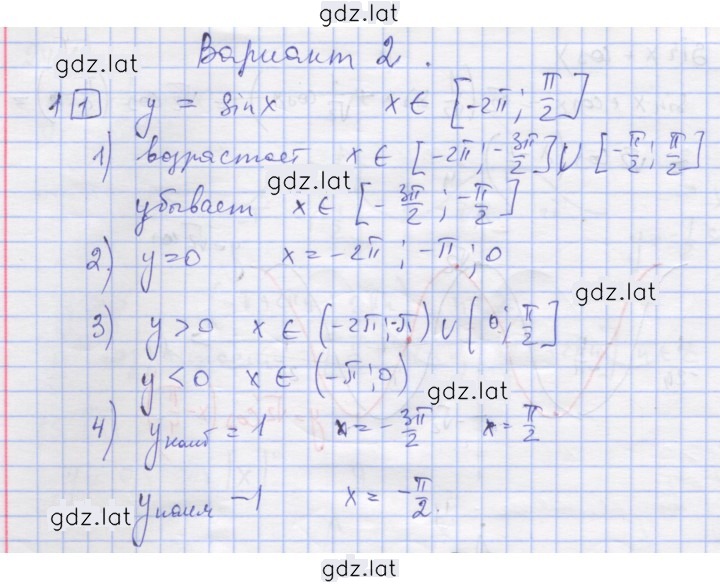 gdz.lat
Вариант 2.
gdz.lat
1 1 y = sin x x ∈ [-2π; π/2]
1) возрастает x ∈ [-2π; -3π/2] ∪ [-π/2; π/2]
gdz.lat
убывает x ∈ [-3π/2; -π/2]
2) y=0 x = -2π; -π; 0
gdz.lat
3) y>0 x ∈ (-2π; -π) ∪ (0; π/2]
y<0 x ∈ (-π; 0)
gdz.lat
4) y наиб = 1 x = -3π/2 x = π/2
y наим -1 x = -π/2.
gdz.lat
gdz.lat